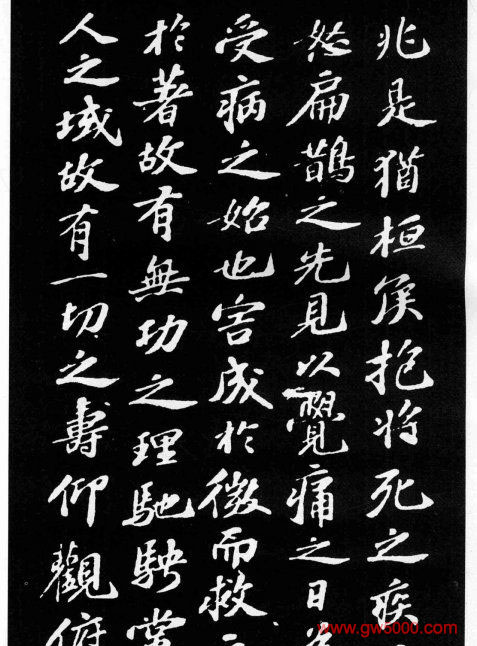 兆是猶桓侯抱將死之疾
怒扁鵲之先見以覺痛之日為
受病之始也害成於微而救之
於著故有無功之理馳騁常
人之域故有一切之壽仰觀俯
www.gw5000.com